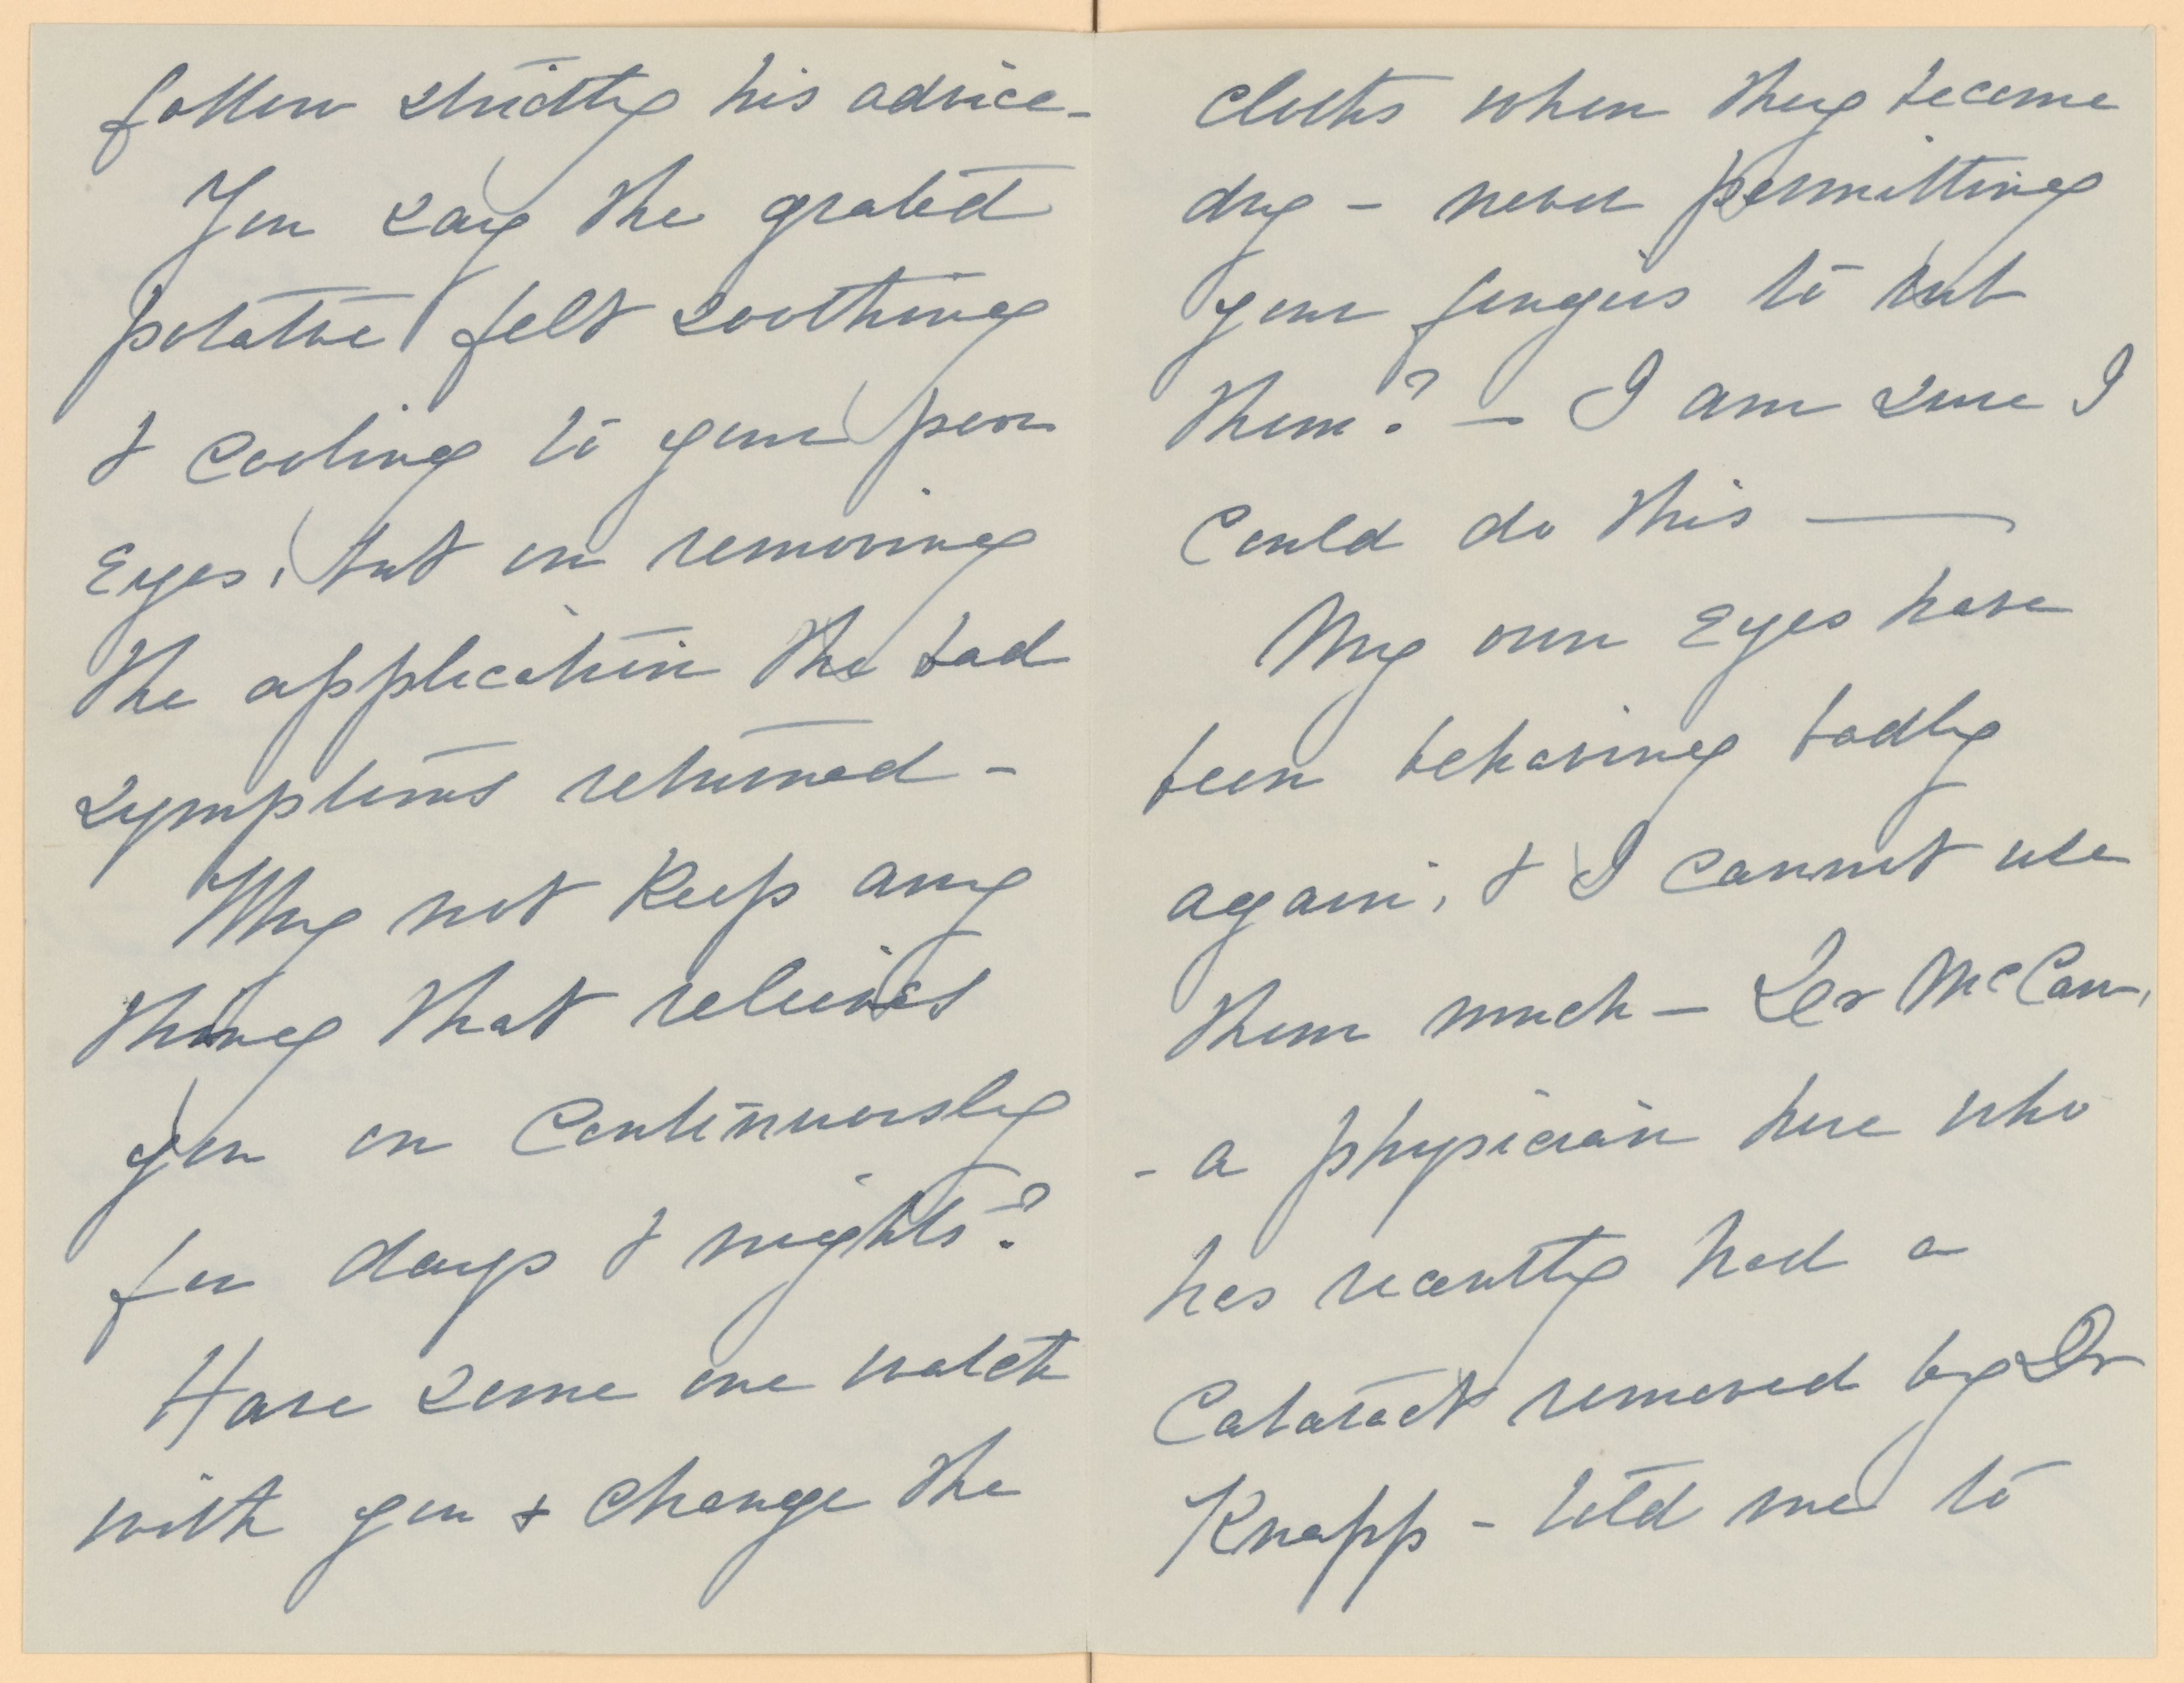 follow strictly his advice -
You say the grated
potatoe felt soothing
& cooling to your poor
Eyes, but on removing
the application the bad
symptoms returned -
Why not keep any
thing that relieves
you on Continuously
for days & nights?
Have some one watch
with you & change the
cloths when they become
dry - never permitting
your fingers to rub
them? - I am sure I
Could do this —
My own Eyes have
been behaving badly
again, & I cannot use
them much - Dr McCaw,
- a physician here who
has recently had a
Cataract removed by Dr
Knapp - told me to